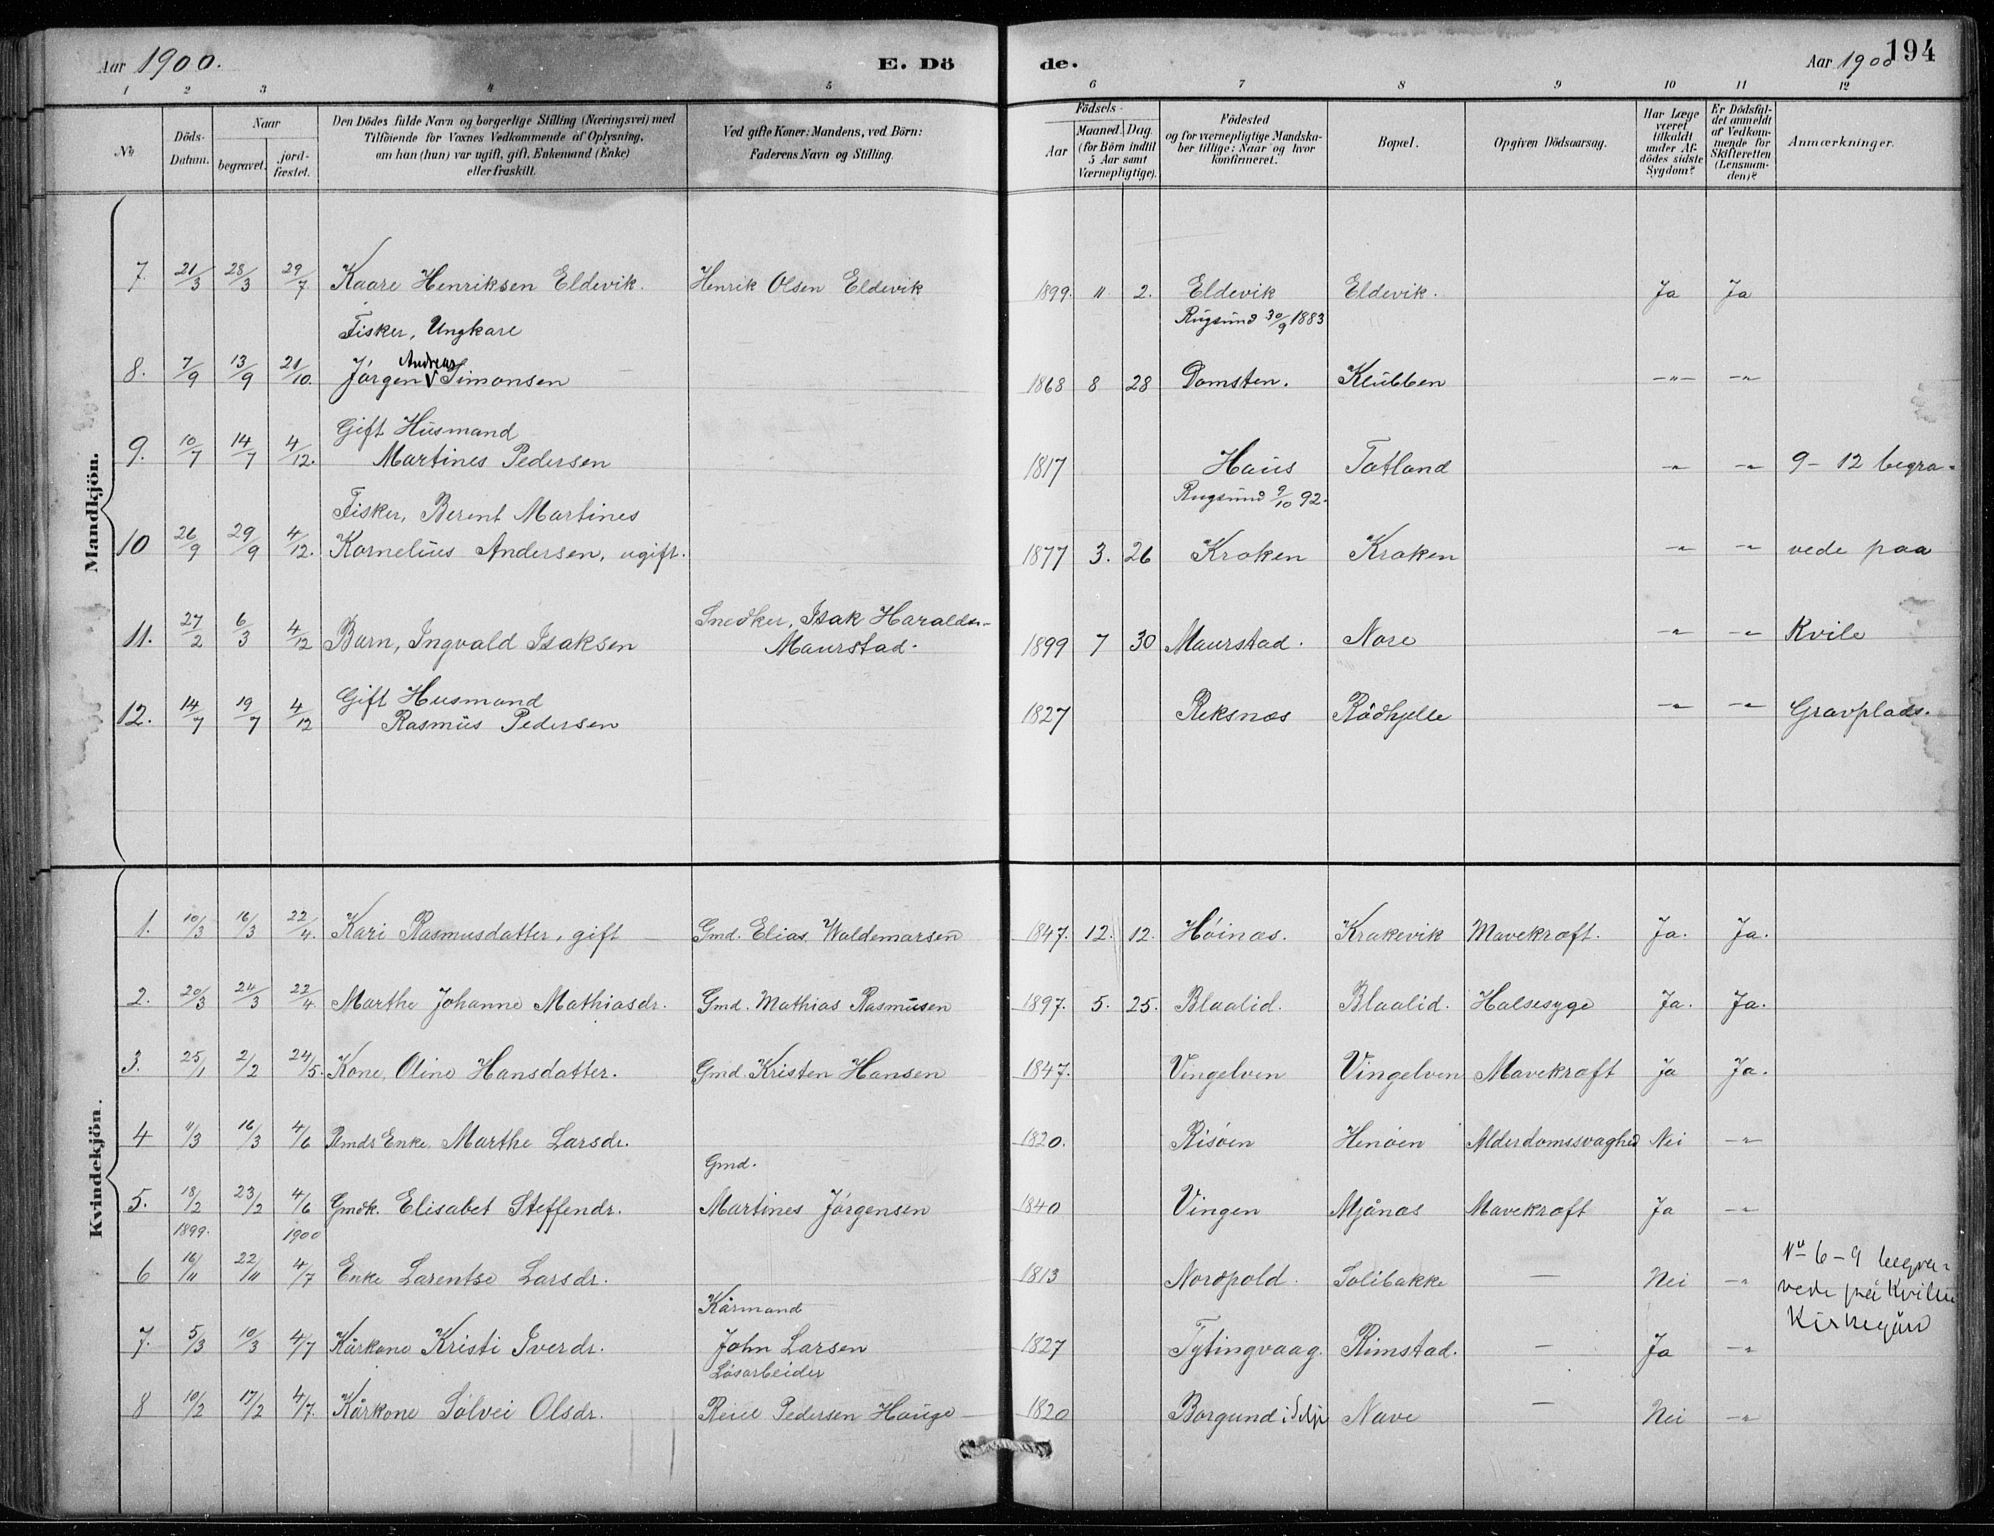 Aar 1900. E. Dö de. Aar 1900 194
1 2 3 4 5 6 7 8 9 10 11 12
No
Döds-Datum.
Naar
begravet.
jord-fæstet.
Den Dödes fulde Navn og borgerlige Stilling (Næringsvei) med
Tilföiende for Voxnes Vedkommende af Oplysning,
om han (hun) var ugift, gift, Enkemand (Enke)
eller fraskilt.
Ved gifte Koner: Mandens, ved Börn:
Faderens Navn og Stilling.
Födsels-
Aar
Maaned. Dag.
(for Börn indtil
5 Aar samt
Værnepligtige).
Födested
og for værnepligtige Mandska-
ber tillige: Naar og hvor
konfirmeret.
Bopæl.
Opgiven Dödsaarsag.
Har Læge
været
tilkaldt
under Af-
dödes sidste
Sygdom?
Er Dödsfal-
det anmeldt
af Vedkom-
mende for
Skifteretten
(Lensman-
den)?
Anmærkninger.
Mandkjön.
7. 21/3 28/3 29/7 Kaare Henriksen Eldevik. Henrik Olsen Eldevik 1899. " 2. Eldevik Eldevik. Ja Ja
Fisker, Ungkare Rugsund 30/9 1883
8. 7/9 13/9 21/10. Jörgen Andreas Simonsen 1868 8 28 Domsten. Klubben -"- -"-
Gift Husmand
9. 10/7 14/7 4/12. Martines Pedersen 1817 Haus Totland -"- -"- 9-12 begra-
Fisker, Berent Martines Rugsund 9/10 92.
10 26/9 29/9 4/12. Kornelius Andersen, ugift. 1877 3. 26 Kroken Kroken -"- -"- vede paa
Snedker, Isak Haralds-
11. 27/2 6/3 4/12 Barn, Ingvald Isaksen Maurstad. 1899 7 30 Maurstad. Nore -"- -"- Kvile
Gift Husmand
12. 14/7 19/7 4/12 Rasmus Pedersen 1827 Reksnæs Rödhjelle -"- -"- Gravplads.
Kvindekjön.
1. 10/3 16/3 22/4. Kari Rasmusdatter, gift Gmd. Elias Waldemarsen 1847. 12. 12. Höinæs. Krakevik Mavekræft. Ja. Ja.
2. 20/3 24/3 22/4 Marthe Johanne Mathiasdr. Gmd. Mathias Rasmusen 1897. 5. 25. Blaalid. Blaalid. Halsesyge Ja. Ja.
3. 25/1 2/2 24/5. Kone, Oline Hansdatter. Gmd. Kristen Hansen 1847. Vingelven Vingelven Mavekræft Ja Ja.
4 11/3 16/3 4/6 Pmds Enke Marthe Larsdr. 1820. Risöen Henöen Alderdomssvaghed Nei -"-
Gmd.
5. 18/2 23/2 4/6 Gmdk. Elisabet Steffendr. Martines Jörgensen 1840 Vingen Mjånæs Mavekræft Ja -"-
1899. 1900
6 16/11 22/11 4/7 Enke Larentse Larsdr. 1813 Nordpold. Solibakke - Nei -"- No 6-9 begra-
vede på Kvilu
Kårmand Kirkegård
7. 5/3 10/3 4/7 Kårkone Kristi Iverdr. John Larsen 1827 Tytingvaag. Rimstad. - Ja -"-
Lösarbeider
8 10/2 17/2 4/7. Kårkone Sölvei Olsdr. Pedersen Hauge 1820 Borgund i Selje Nave - Nei -"-